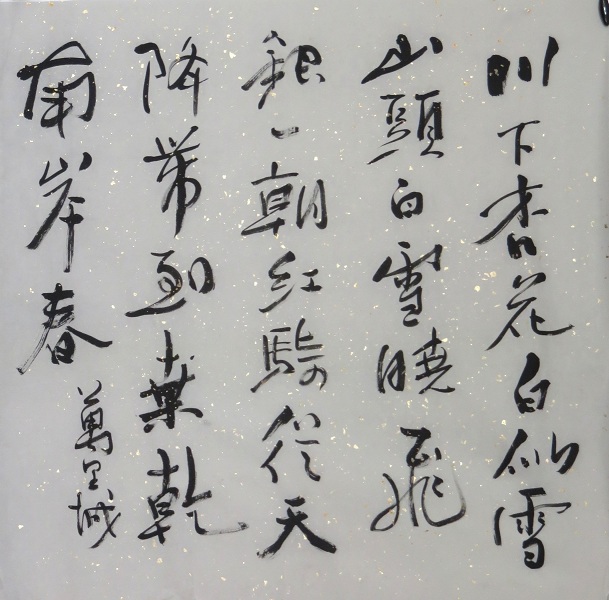 川下杏花白似雪
山頭白雪曉飛
銀一朝紅騎從天
降帶到葉乾
南岸春
萬里城